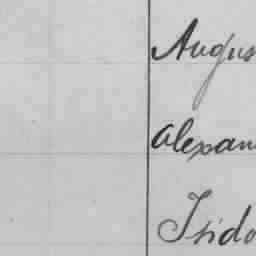 Augus
Alexan
Isido